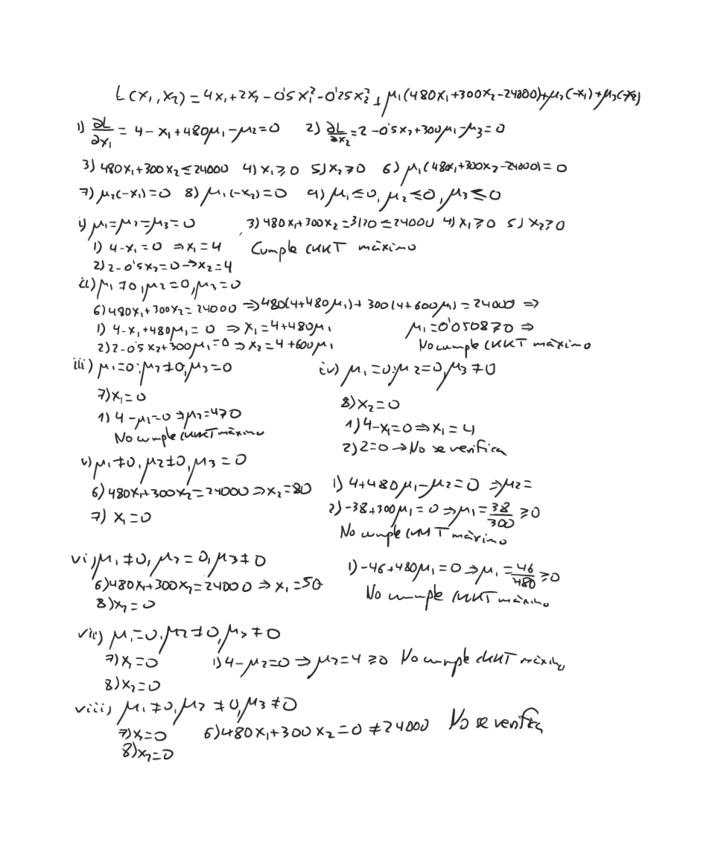 L(x₁,x₂) = 4x₁+2x₂ - 0'5x₁² - 0'25x₂² + μ₁(480x₁+300x₂-24000)+μ₂(-x₁)+μ₃(-x₂)
1) ∂L/∂x₁ = 4 - x₁ + 480μ₁ - μ₂ = 0 2) ∂L/∂x₂ = 2 - 0'5x₂ + 300μ₁ - μ₃ = 0
3) 480x₁+300x₂ ≤ 24000 4) x₁ ≥ 0 5) x₂ ≥ 0 6) μ₁(480x₁+300x₂-24000) = 0
7) μ₂(-x₁) = 0 8) μ₁(-x₂) = 0 9) μ₁ ≤ 0, μ₂ ≤ 0, μ₃ ≤ 0
i) μ₁ = μ₂ = μ₃ = 0 3) 480x₁+300x₂ = 3120 ≤ 24000 4) x₁ ≥ 0 5) x₂ ≥ 0
1) 4 - x₁ = 0 ⇒ x₁ = 4 Cumple CKKT máximo
2) 2 - 0'5x₂ = 0 → x₂ = 4
ii) μ₁ ≠ 0, μ₂ = 0, μ₃ = 0
6) 480x₁+300x₂ = 24000 ⇒ 480(4+480μ₁) + 300(4+600μ₁) = 24000 ⇒
1) 4 - x₁ + 480μ₁ = 0 ⇒ x₁ = 4+480μ₁ μ₁ = 0'0508 ≥ 0 ⇒
2) 2 - 0'5x₂ + 300μ₁ = 0 ⇒ x₂ = 4+600μ₁ No cumple CKKT máximo
iii) μ₁ = 0; μ₂ ≠ 0, μ₃ = 0
7) x₁ = 0
1) 4 - μ₁ = 0 ⇒ μ₂ = 4 ≥ 0
No cumple CKKT máximo
iv) μ₁ = 0; μ₂ = 0, μ₃ ≠ 0
8) x₂ = 0
1) 4 - x₁ = 0 ⇒ x₁ = 4
2) 2 = 0 → No se verifica
v) μ₁ ≠ 0, μ₂ ≠ 0, μ₃ = 0
6) 480x₁+300x₂ = 24000 ⇒ x₂ = 80 1) 4+480μ₁ - μ₂ = 0 ⇒ μ₂ =
7) x₁ = 0 2) -38+300μ₁ = 0 ⇒ μ₁ = 38/300 ≥ 0
No cumple CKKT máximo
vi) μ₁ ≠ 0, μ₂ = 0, μ₃ ≠ 0
6) 480x₁+300x₂ = 24000 ⇒ x₁ = 50 1) -46+480μ₁ = 0 ⇒ μ₁ = 46/480 ≥ 0
8) x₂ = 0 No cumple CKKT máximo
vii) μ₁ = 0, μ₂ ≠ 0, μ₃ ≠ 0
7) x₁ = 0 1) 4 - μ₂ = 0 ⇒ μ₂ = 4 ≥ 0 No cumple CKKT máximo
8) x₂ = 0
viii) μ₁ ≠ 0, μ₂ ≠ 0, μ₃ ≠ 0
7) x₁ = 0 6) 480x₁+300x₂ = 0 ≠ 24000 No se verifica
8) x₂ = 0